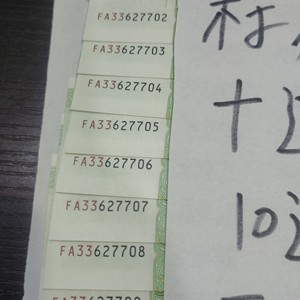 FA33627702
FA33627703
FA33627704
FA33627705
FA33627706
FA33627707
FA33627708
标
十连
10连